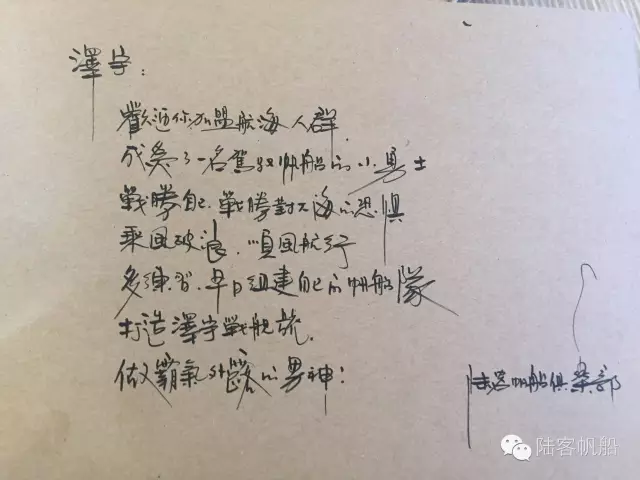 澤宇：
歡迎你加盟航海人群
成爲了一名駕駛帆船的小勇士
戰勝自己.戰勝對大海的恐惧
乘風破浪.順風航行
多練習.早日組建自己的帆船隊
打造澤宇戰舰旅.
做霸氣外露的男神！
陆客帆船俱樂部
陆客帆船